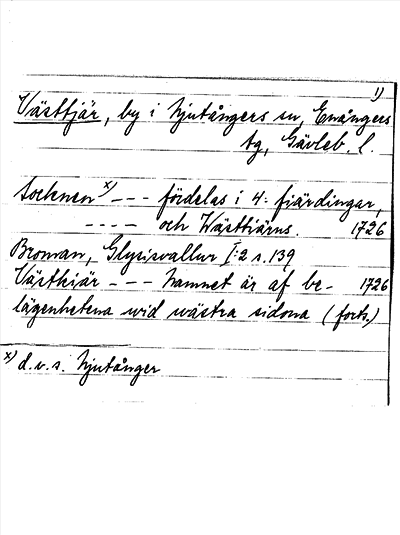 1)
Västtjär, by i Njutångers sn, Enångers
tg, Gävleb. l.
Socknen x) --- fördelas i 4: fiärdingar,
---- och Wästtiärns. 1726
Broman, Glysisvallur I:2 s. 139
Västkiär --- Namnet är af be- 1726
lägenhetena wid wästra sidona (forts.)
x) d.v.s. Njutånger